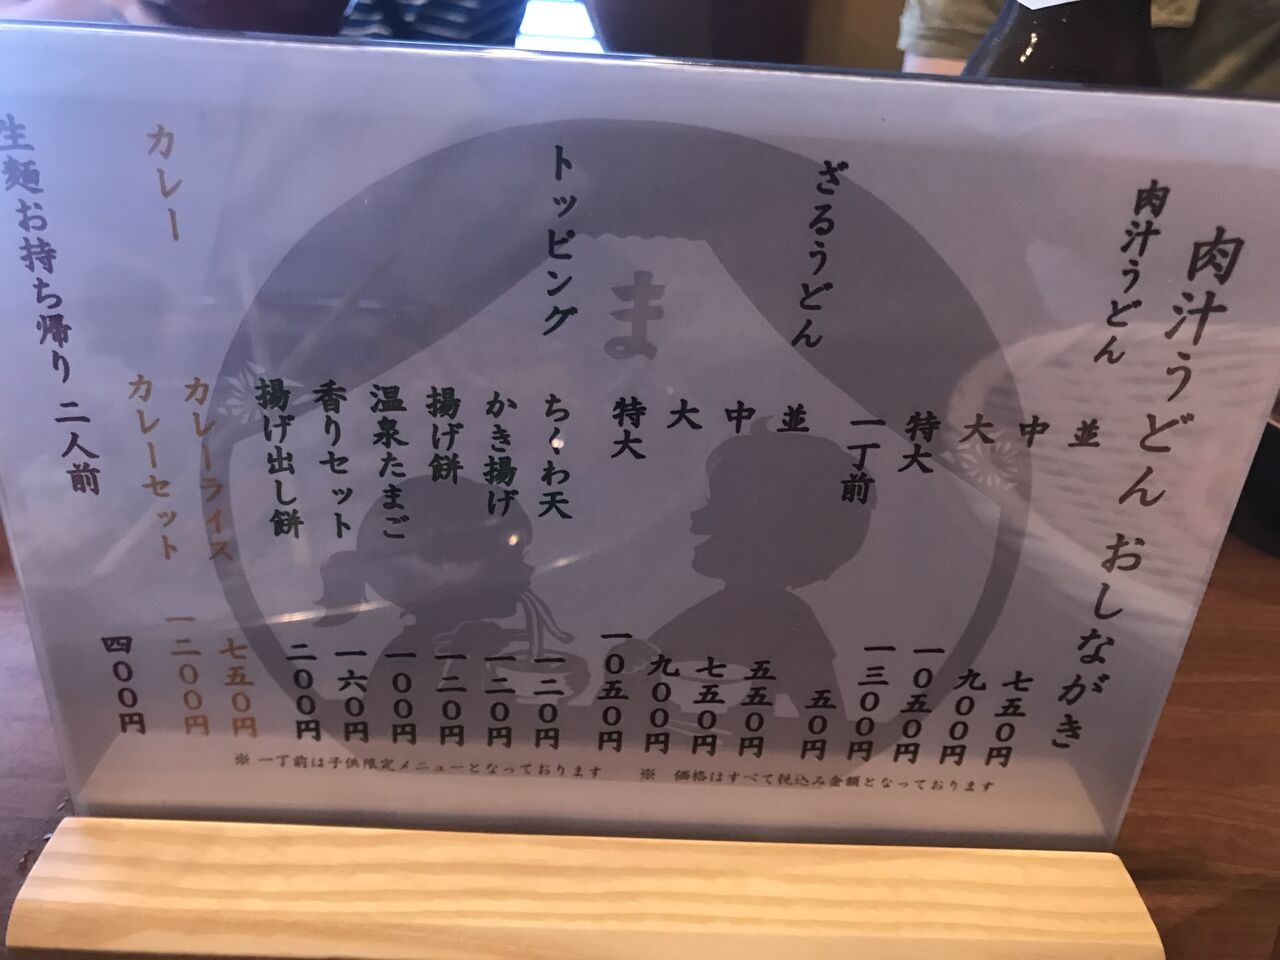 肉汁うどん おしながき
肉汁うどん
並 七五〇円
中 九〇〇円
大 一〇五〇円
特大 一三〇〇円
一丁前 五〇円
ざるうどん
並 五五〇円
中 七五〇円
大 九〇〇円
特大 一〇五〇円
トッピング
ちくわ天 一二〇円
かき揚げ 一二〇円
揚げ餅 一二〇円
温泉たまご 一〇〇円
香りセット 一六〇円
揚げ出し餅 二〇〇円
カレー
カレーライス 七五〇円
カレーセット 一二〇〇円
生麺お持ち帰り 二人前 四〇〇円
ま
※ 一丁前は子供限定メニューとなっております
※ 価格はすべて税込み金額となっております